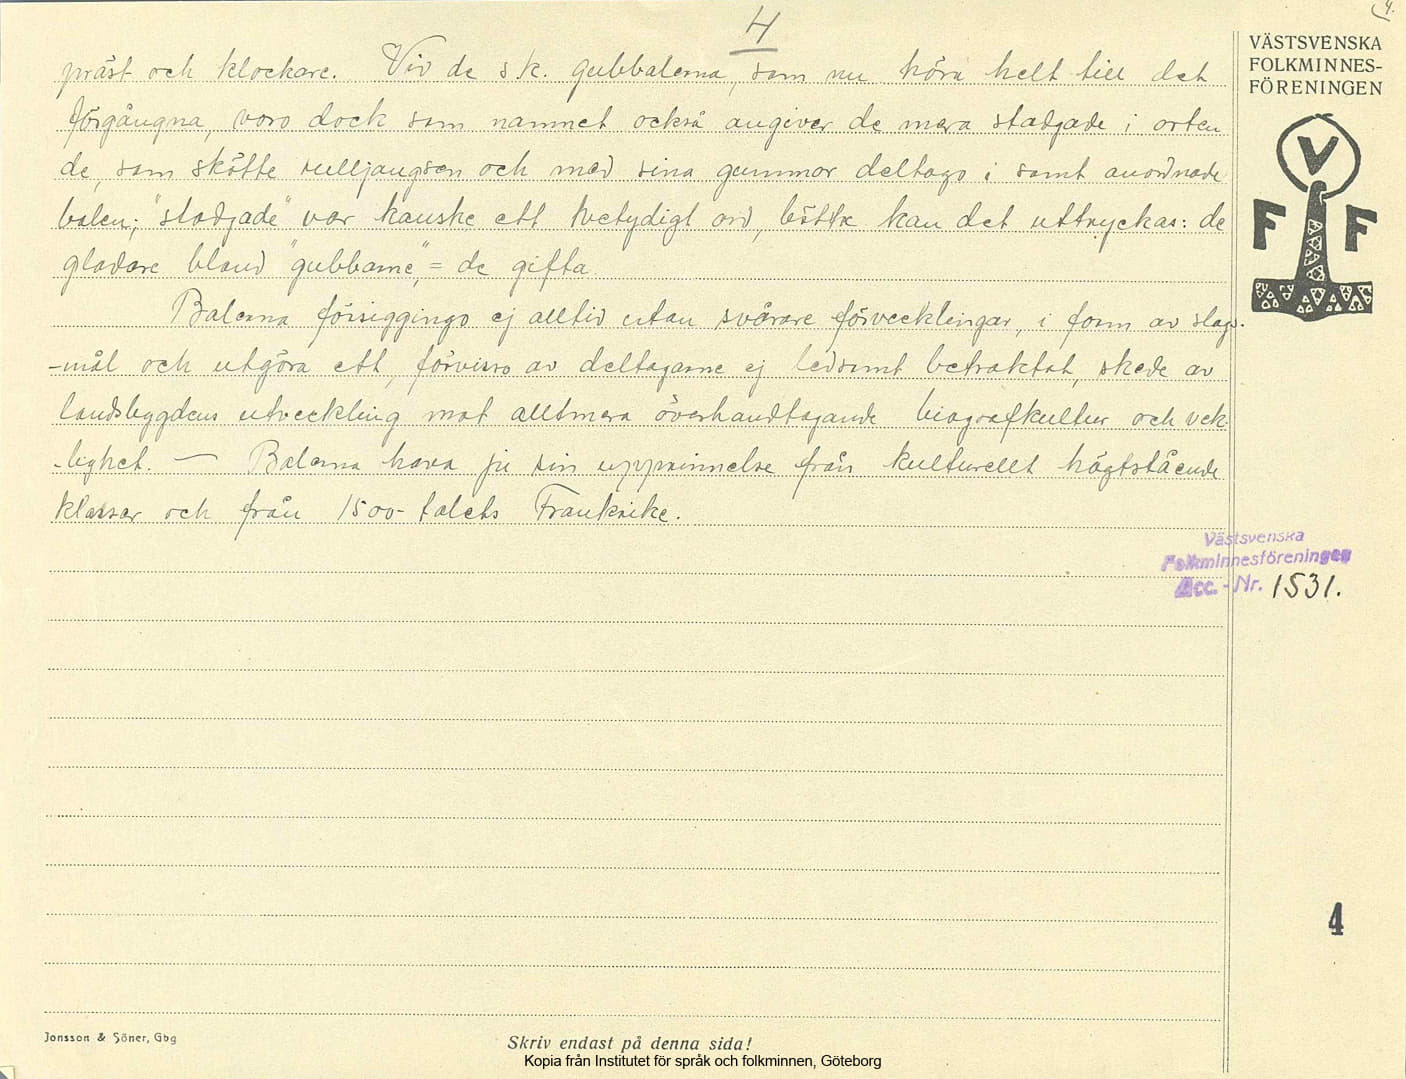 4.
4
VÄSTSVENSKA
FOLKMINNES-
FÖRENINGEN
V
F F
präst och klockare. Vid de s.k. gubbalerna, som nu höra helt till det
förgångna, voro dock som namnet också angiver de mera stadgade i orten
de, som skötte rulljangsen och med sina gummor deltogo i samt anordnade
balen; "stadgade" var kanske ett tvetydigt ord, bättre kan det uttryckas: de
gladare bland "gubbarne", = de gifta
Balerna försiggingo ej alltid utan svårare förvecklingar, i form av slags-
-mål och utgöra ett, förvisso av deltagarne ej ledsamt betraktat, skede av
landsbygdens utveckling mot alltmera överhandtagande biografkultur och vek-
-lighet. — Balerna hava ju sin upprinnelse från kulturellt högtstående
klasser och från 1500-talets Frankrike.
Västsvenska
Folkminnesföreningen
Acc.-Nr. 1531.
4
Jonsson & Söner, Gbg
Skriv endast på denna sida!
Kopia från Institutet för språk och folkminnen, Göteborg